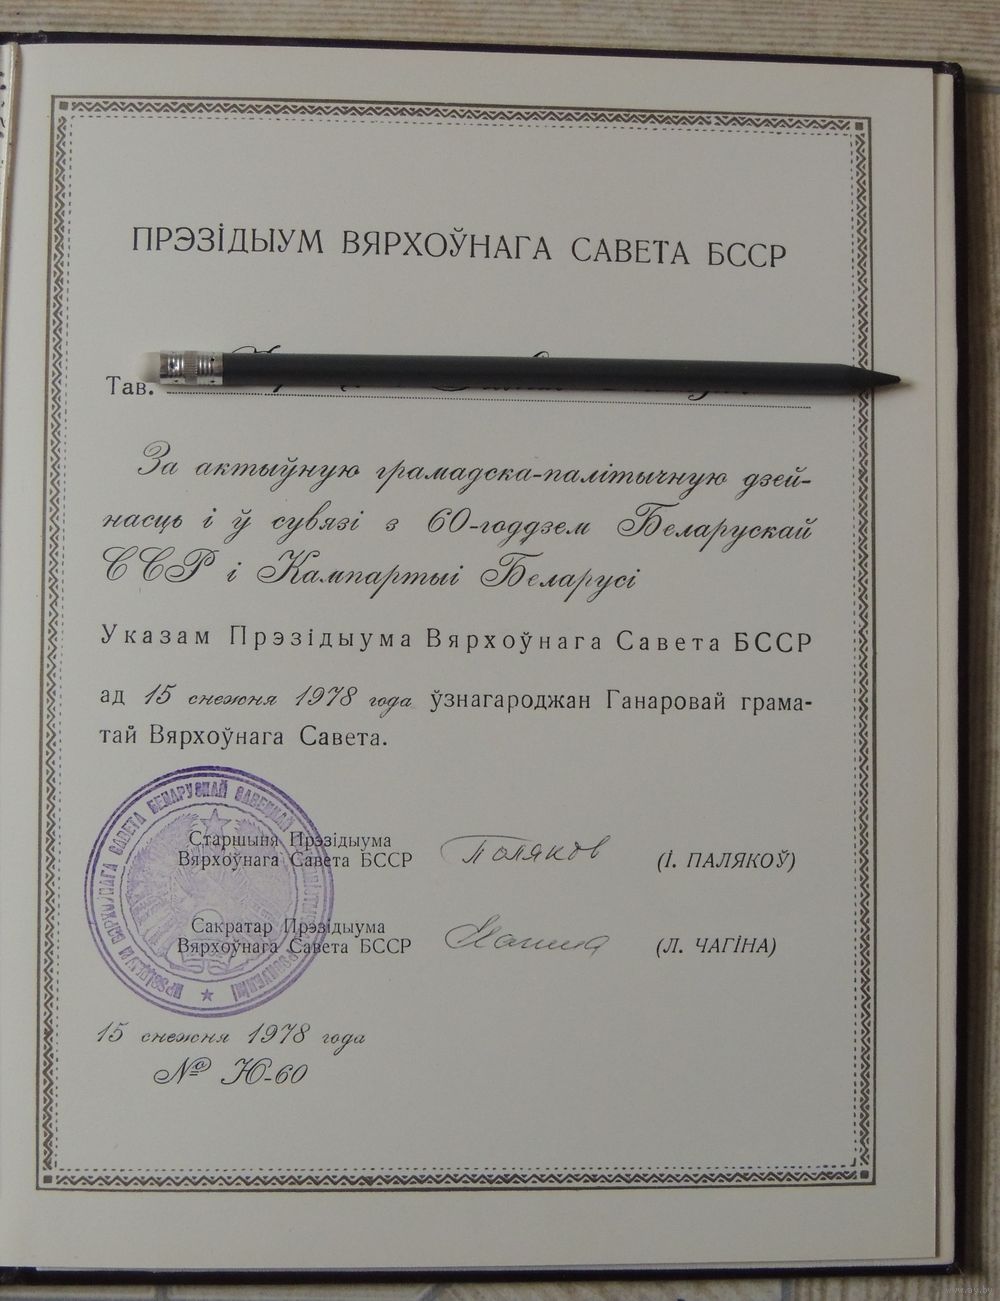 ПРЭЗІДЫУМ ВЯРХОЎНАГА САВЕТА БССР
Тав.
За актыўную грамадска-палітычную дзей-
насць і ў сувязі з 60-годдзем Беларускай
ССР і Кампартыі Беларусі
Указам Прэзідыума Вярхоўнага Савета БССР
ад 15 снежня 1978 года ўзнагароджан Ганаровай грама-
тай Вярхоўнага Савета.
Старшыня Прэзідыума
Вярхоўнага Савета БССР Поляков (І. ПАЛЯКОЎ)
Сакратар Прэзідыума
Вярхоўнага Савета БССР (Л. ЧАГІНА)
ПРЭЗІДЫУМ ВЯРХОЎНАГА САВЕТА БЕЛАРУСКАЙ САВЕЦКАЙ
15 снежня 1978 года
№ Ю-60
www.ay.by